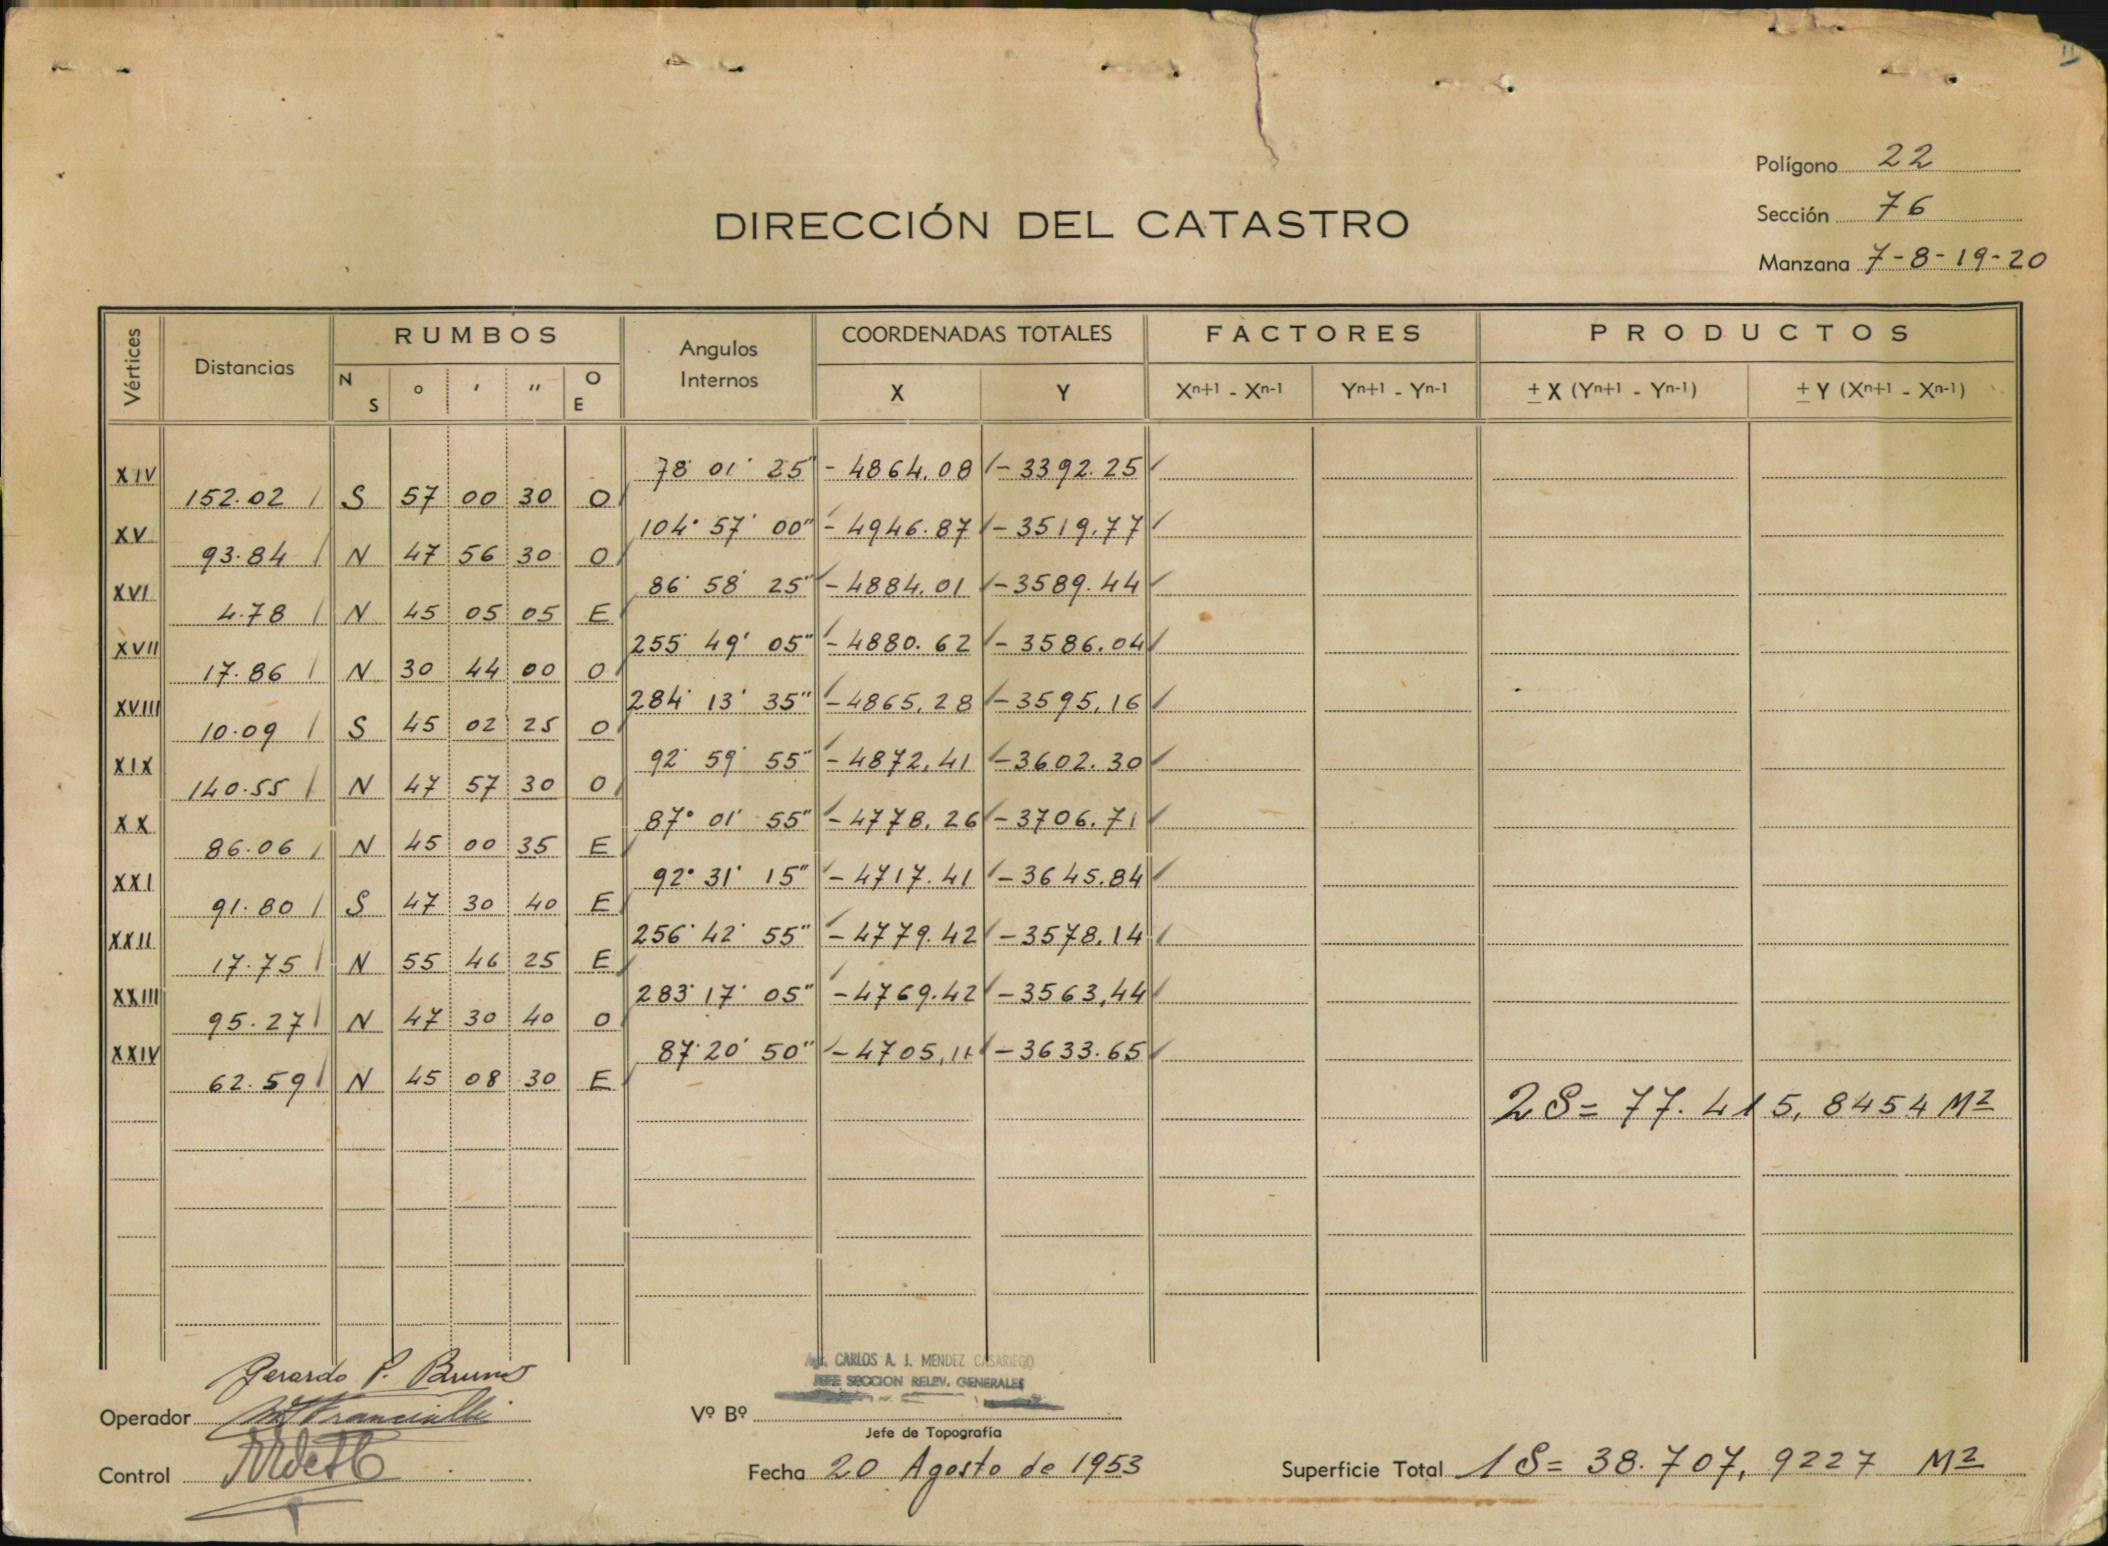 11
Polígono 22
Sección 76
Manzana 7-8-19-20
DIRECCIÓN DEL CATASTRO
Vértices Distancias RUMBOS Angulos Internos COORDENADAS TOTALES FACTORES PRODUCTOS
N S ° ' " O E X Y Xn+1 - Xn-1 Yn+1 - Yn-1 ± X (Yn+1 - Yn-1) ± Y (Xn+1 - Xn-1)
XIV 78° 01' 25" - 4864,08 - 3392.25
152.02 S 57 00 30 O
XV 104° 57' 00" - 4946.87 - 3519,77
93.84 N 47 56 30 O
XVI 86° 58' 25" - 4884,01 - 3589.44
4.78 N 45 05 05 E
XVII 255° 49' 05" - 4880.62 - 3586,04
17.86 N 30 44 00 O
XVIII 284° 13' 35" - 4865,28 - 3595,16
10.09 S 45 02 25 O
XIX 92° 59' 55" - 4872,41 - 3602.30
140.55 N 47 57 30 O
XX 87° 01' 55" - 4778,26 - 3706.71
86.06 N 45 00 35 E
XXI 92° 31' 15" - 4717.41 - 3645.84
91.80 S 47 30 40 E
XXII 256° 42' 55" - 4779.42 - 3578,14
17.75 N 55 46 25 E
XXIII 283° 17' 05" - 4769.42 - 3563,44
95.27 N 47 30 40 O
XXIV 87° 20' 50" - 4705,11 - 3633.65
62.59 N 45 08 30 E
2S = 77.415,8454 M2
Gerardo P. Bruno
CARLOS A. J. MENDEZ CASARIEGO
JEFE SECCION RELEV. GENERALES
Operador
Vº Bº
Jefe de Topografía
Control
Fecha 20 Agosto de 1953
Superficie Total 1S = 38.707,9227 M2